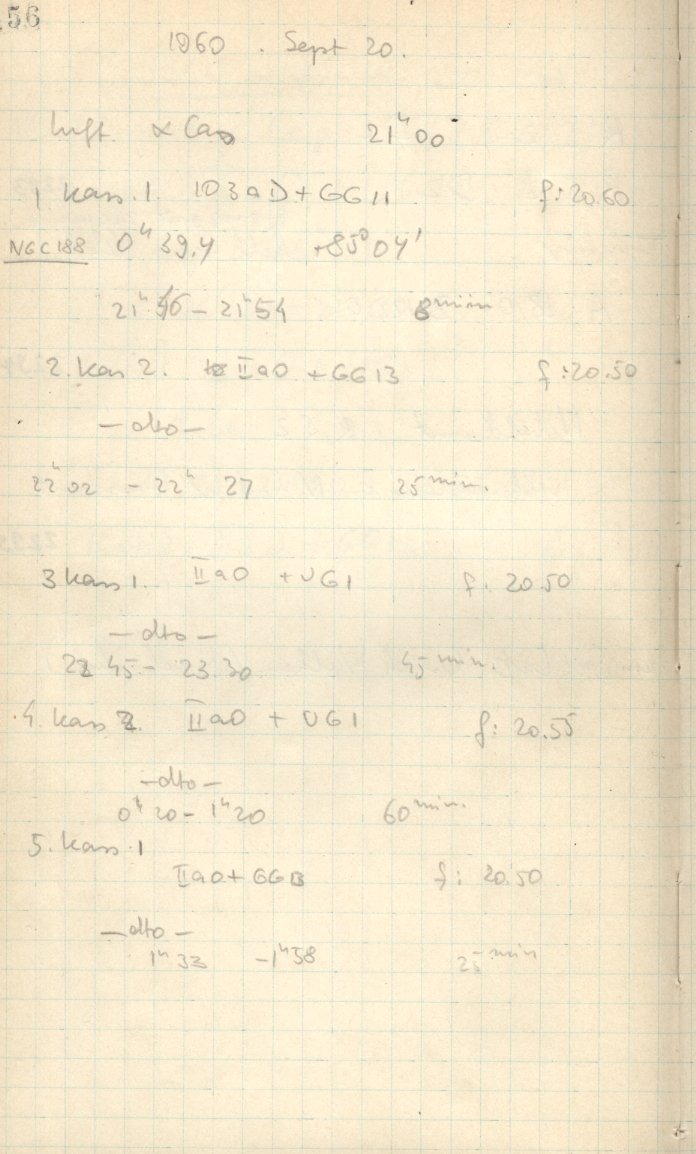 56
1960 . Sept 20.
luft α Cas 21ʰ00
1 Kass. 1. 103aD+GG11 f:20.60
NGC188 0ʰ39,4 +85°04'
21ʰ46 - 21ʰ54 8 min
2. Kass 2. IIaO + GG13 f:20.50
- dto -
22ʰ02 - 22ʰ 27 25 min.
3 Kass 1. IIaO + UG1 f: 20.50
- dto -
22 45 - 23.30 45 min.
4. Kass 2. IIaO + UG1 f: 20.55
- dto -
0ʰ20 - 1ʰ20 60 min.
5. Kass 1
IIaO + GG13 f: 20.50
- dto -
1ʰ33 - 1ʰ58 25 min